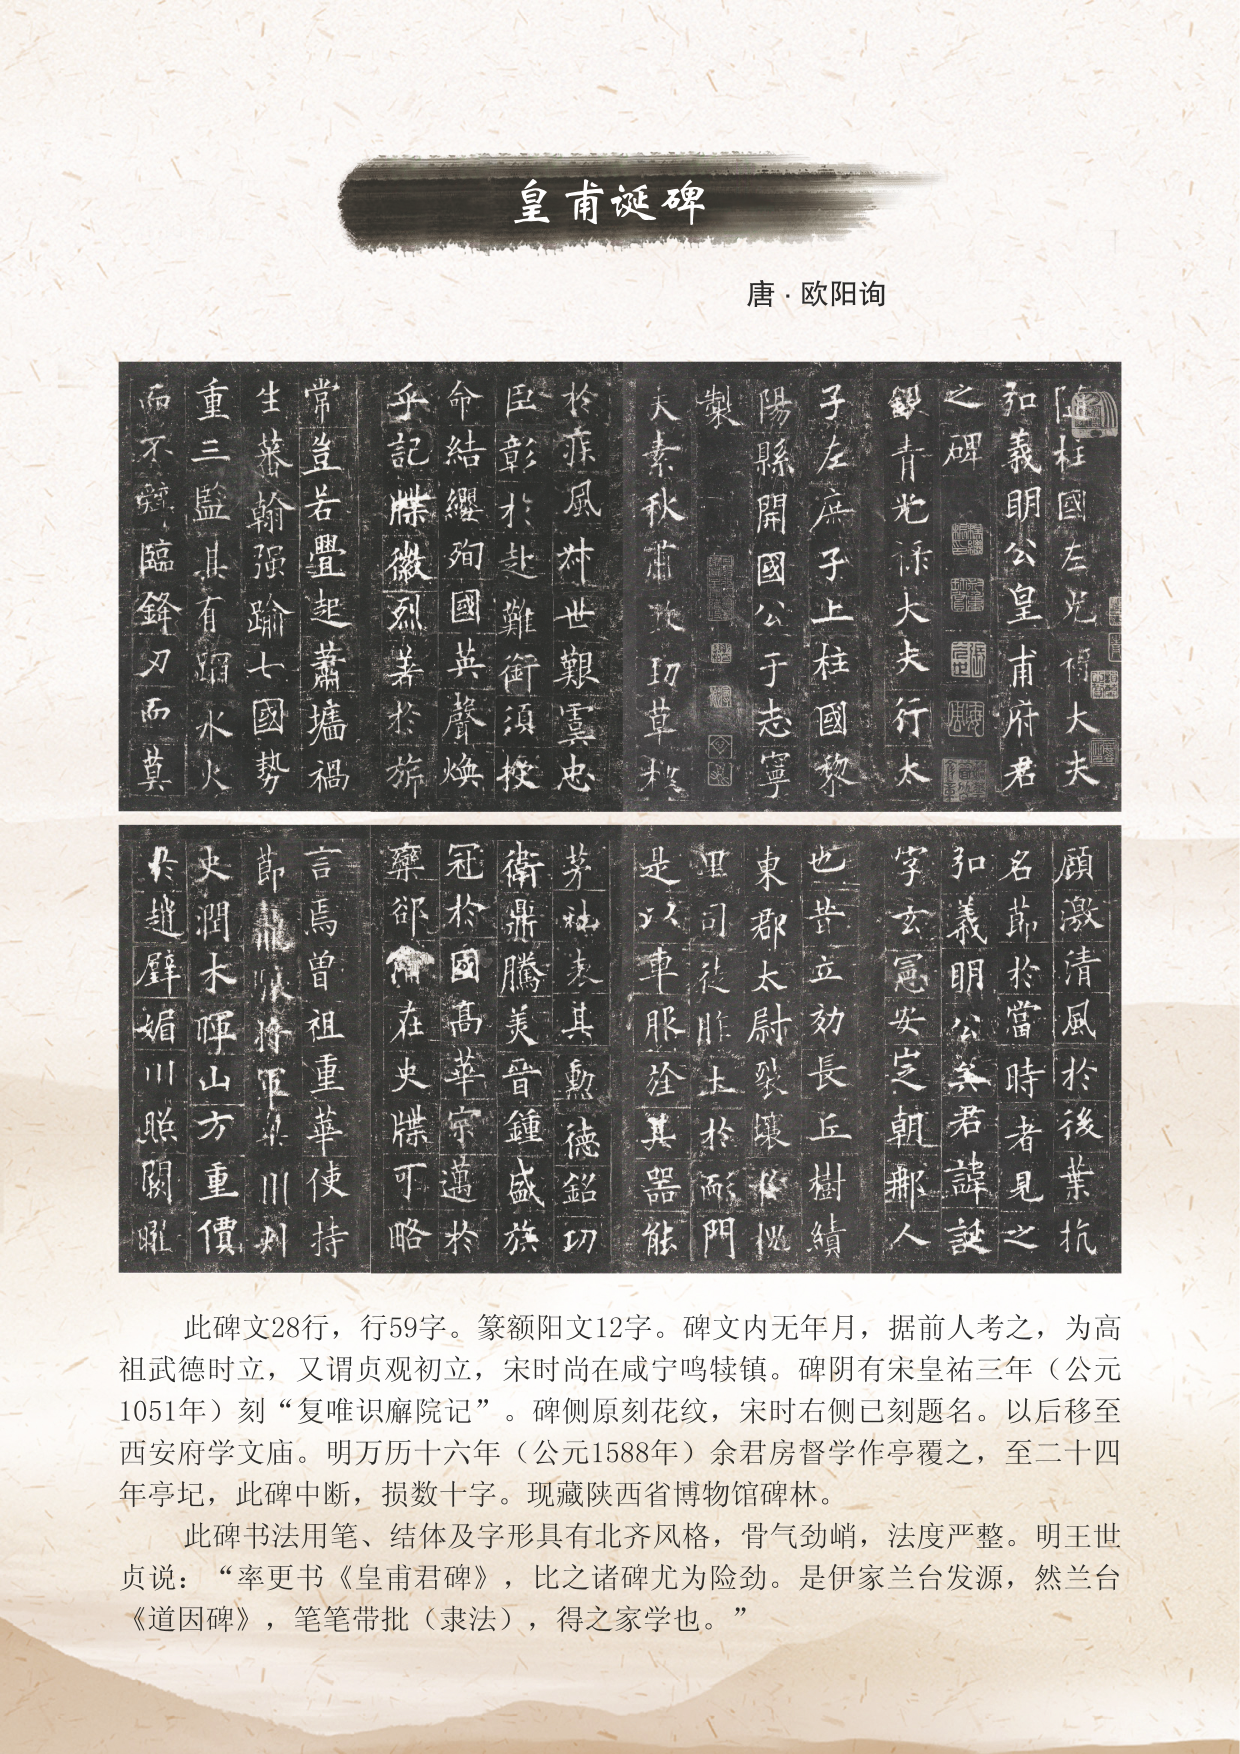 皇甫诞碑
唐·欧阳询
柱國左光大夫
弘義明公皇甫府君
之碑
銀青光祿大夫行太
子左庶子上柱國黎
陽縣開國公于志寧
製
夫素秋肅煞勁草標
於疾風叔世艱虞忠
臣彰於赴難銜須授
命結纓殉國英聲煥
乎記牒徽烈著於旂
常豈若釁起蕭墻禍
生蕃翰强踰七國勢
重三監其有蹈水火
而不辭臨鋒刃而莫
顧激清風於後葉抗
名節於當時者見之
弘義明公矣君諱誕
字玄憲安定朝那人
也昔立効長丘樹績
東郡太尉裂壤於槐
里司徒胙土於耏門
是以車服詮其器能
茅社表其勳德銘功
衛鼎騰美晉鍾盛族
冠於國高華宗邁於
欒郤備在史牒可略
言焉曾祖重華使持
節龍驤將軍梁州刺
史潤木暉山方重價
於趙璧媚川照闕曜
此碑文28行，行59字。篆额阳文12字。碑文内无年月，据前人考之，为高
祖武德时立，又谓贞观初立，宋时尚在咸宁鸣犊镇。碑阴有宋皇祐三年（公元
1051年）刻“复唯识廨院记”。碑侧原刻花纹，宋时右侧已刻题名。以后移至
西安府学文庙。明万历十六年（公元1588年）余君房督学作亭覆之，至二十四
年亭圮，此碑中断，损数十字。现藏陕西省博物馆碑林。
此碑书法用笔、结体及字形具有北齐风格，骨气劲峭，法度严整。明王世
贞说：“率更书《皇甫君碑》，比之诸碑尤为险劲。是伊家兰台发源，然兰台
《道因碑》，笔笔带批（隶法），得之家学也。”